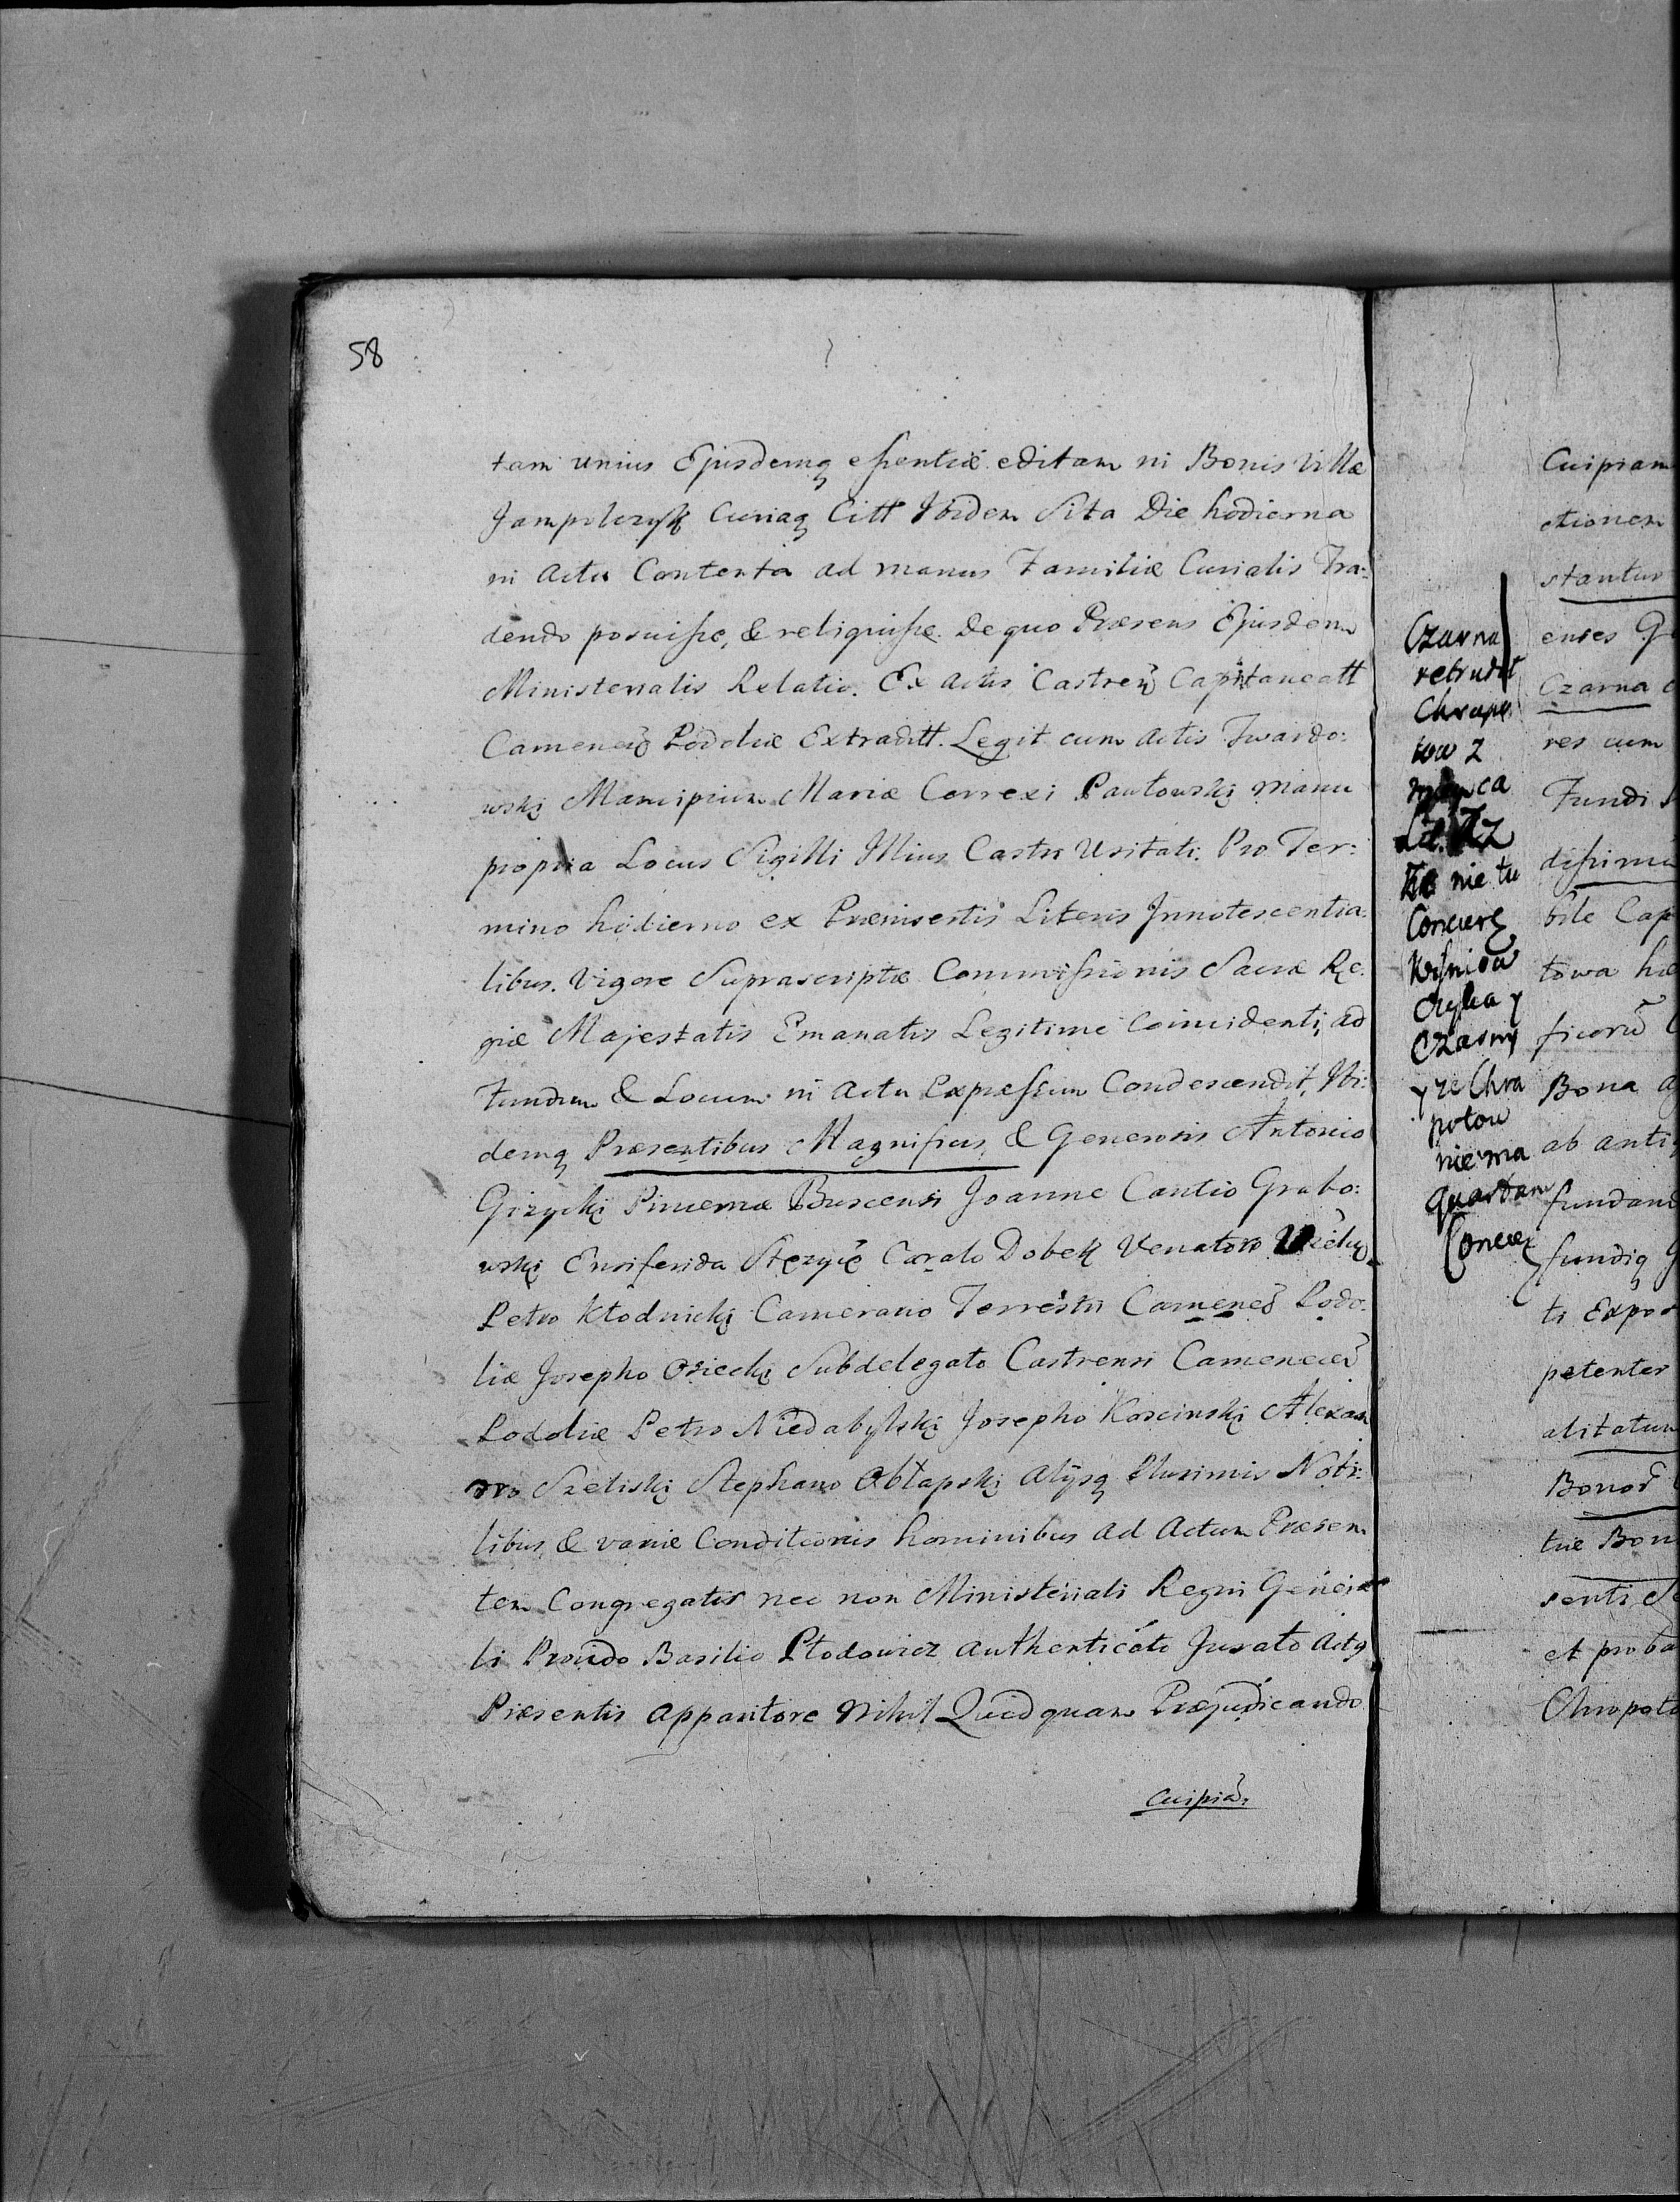 58
tam unius Ejusdemq essentiæ editam in Bonis Villæ
Jampolczyk Curiaq Citt Ibidem Sita Die hodierna
in Actu Contenta ad manus Familiæ Curialis Tra:
dendo posuisse, & reliquisse. De quo Præsens Ejusdem
Ministerialis Relatio. Ex Actis Castren Capitaneatt
Camenecẽ Podoliæ Extraditt. Legit cum Actis Twardo:
wski Mancipium Mariæ Correxi Pawłowski manu
propria Locus Sigilli Illius Castri Usitati. Pro Ter:
mino hodierno ex Præinsertis Literis Innotescentia:
libus. Vigore Suprascriptæ Commissionis Sacræ Re:
giæ Majestatis Emanatis Legitime Coincidenti, ad
Fundum & Locum in Actu Expressum Condescendit, Ibi:
demq Præsentibus Magnificis, & Generosis Antonio
Giżycki Pincerna Buscensi Joanne Cantio Grabo:
wski Ensiferida Stęzycẽ Carolo Dobek Venatore
Petro Kłodnicki Camerario Terrestri Camenecẽ Podo:
liæ Josepho Osiecki Subdelegato Castrensi Camenecẽ
Podoliæ Petro Niedabylski Josepho Koscinski Alexan
dro Szeliski Stephano Obłapski Alijsq Plurimis Nobi:
libus, & variæ Conditionis hominibus ad Actum Præsen
tem Congregatis nec non Ministeriali Regni Genera
li Provido Basilio Płodowicz Authentico Jurato Actq
Præsentis Apparitore Nihil Quidquam Præjudicando
Cuipiã:
Czarna
retrudit
Chrapo
wa z
nie tu
Concern
y ze Chra
potow
nie ma
quartam
Concer
Cuipiam
ctionem
stantur
enses G
Czarna
res cum
Fundi
dissima
bile Cap
towa hæ
ficorũ
Bona
ab anti
fundam
fundiq
ti Expo
petenter
alitatum
Bonor
tuæ Bon
senti
et proba
Chropoto